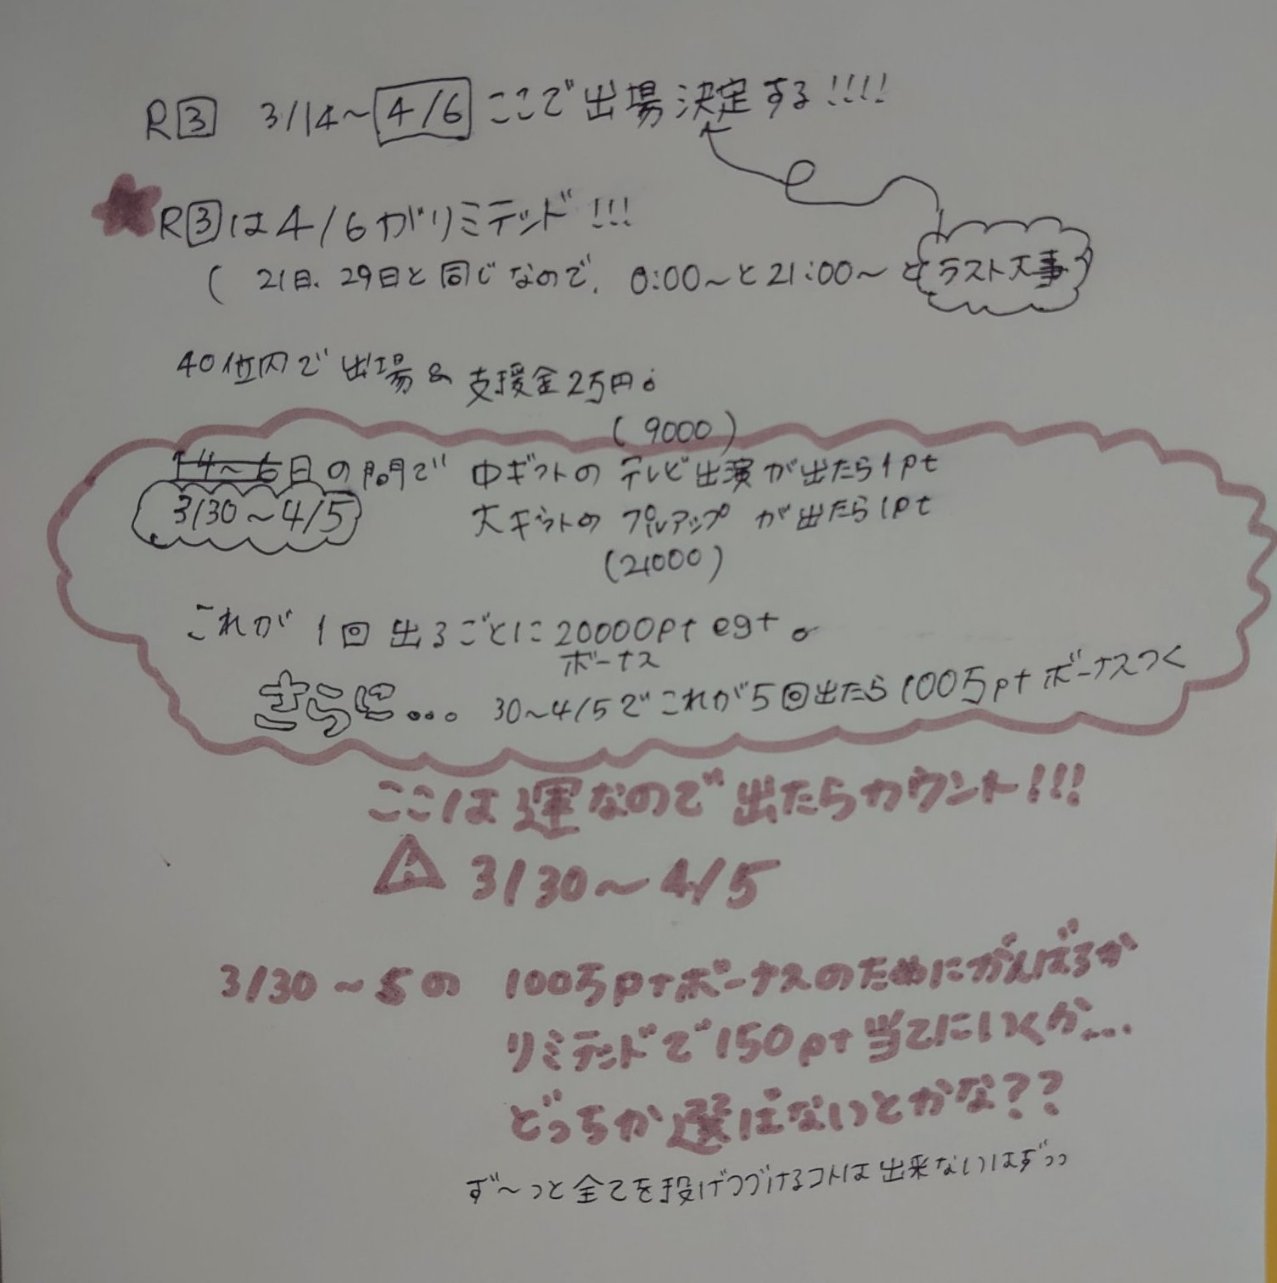 R3 3/14~4/6 ここで出場決定する!!!!
R3は4/6がリミテッド!!!
( 21日、29日と同じなので、0:00~と21:00~と ラスト大事
40位内で出場&支援金2万円。
(9000)
14~6日の間で 中ギフトのテレビ出演が出たら1pt
3/30~4/5 大ギフトのプルアップが出たら1pt
(21000)
これが1回出るごとに20000pt get。
ボーナス
さらに... 30~4/5でこれが5回出たら100万ptボーナスつく
ここは運なので出たらカウント!!!
3/30~4/5
3/30~5の 100万ptボーナスのためにがんばるか
リミテッドで150pt当てにいくか...
どっちか選ばないとかな??
ず~っと全てを投げつづけるコトは出来ないはずっっ